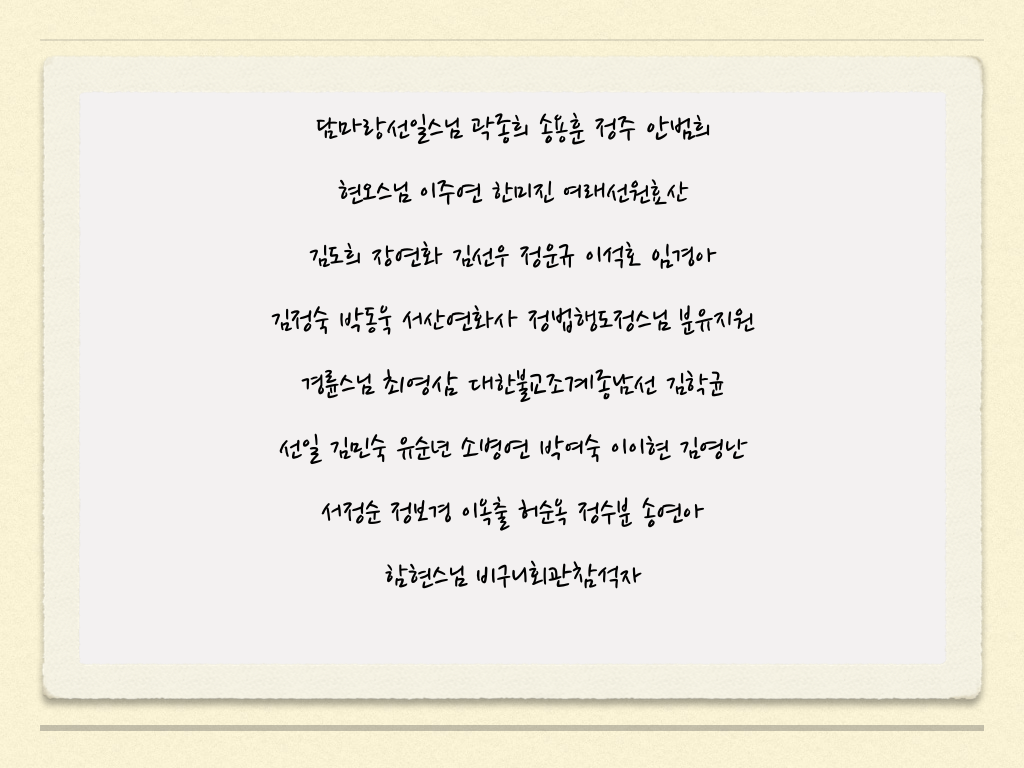 담마랑선일스님 곽종희 송용훈 정주 안범희
현오스님 이주연 한미진 여래선원효산
김도희 장연화 김선우 정운규 이석호 임경아
김정숙 박동욱 서산연화사 정법행도정스님 분유지원
경륜스님 최영삼 대한불교조계종남선 김학균
선일 김민숙 유순년 소병연 박여숙 이이현 김영난
서정순 정보경 이옥출 허순옥 정수분 송연아
함현스님 비구니회관참석자